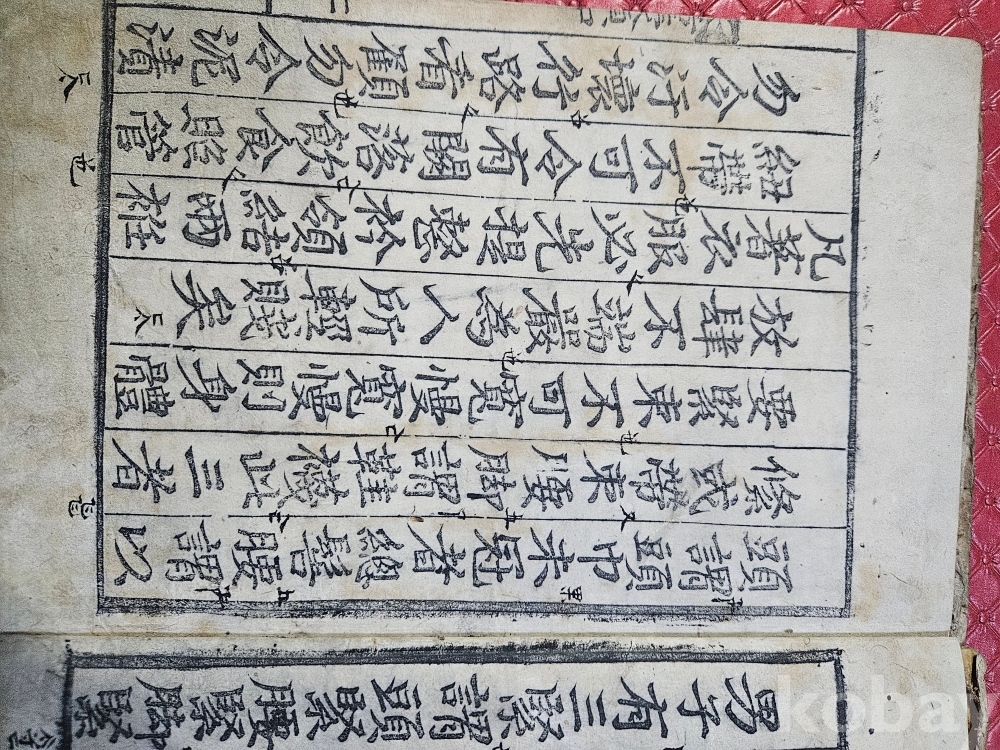 男子有三緊謂頭緊腰緊脚緊
頭謂頭巾未冠者總髻腰謂以
絛或帶束腰脚謂鞋襪此三者
要緊束不可寬慢寬慢則身體
放肆不端嚴爲人所輕賤矣
凡著衣服必先提整衿領結兩衽
紐帶不可令有闕落飮食照管
勿令汙壞行路看顧勿令泥漬
kobay